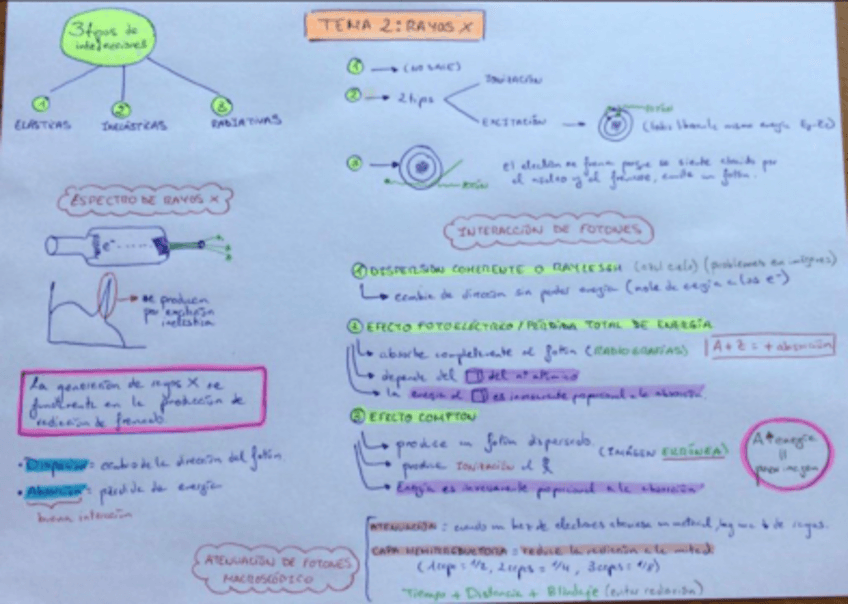 TEMA 2: RAYOS X
3 tipos de interacciones
1 2 3
ELÁSTICAS INELÁSTICAS RADIATIVAS
1 → (NO SALE)
2 → 2 tipos
IONIZACIÓN
EXCITACIÓN →
FOTÓN
3 →
FOTÓN
el electrón se frena porque se siente atraído por
el núcleo y al frenarse, emite un fotón.
ESPECTRO DE RAYOS X
e-
se producen
por excitación
inelástica
La generación de rayos X se
en la producción de
radiación de frenado.
• Dispersión = cambio de la dirección del fotón
• Absorción = pérdida de energía
buena interacción
INTERACCIÓN DE FOTONES
1 DISPERSIÓN COHERENTE O RAYLEIGH (azul cielo) (problemas en imágenes)
cambia de dirección sin perder energía
2 EFECTO FOTOELÉCTRICO / PÉRDIDA TOTAL DE ENERGÍA
absorbe completamente el fotón (RADIOGRAFÍAS)
A + Z = + absorción
depende del del nº atómico
la energía al es inversamente proporcional a la absorción.
3 EFECTO COMPTON
produce un fotón dispersado.
(IMÁGEN ERRÓNEA)
produce IONIZACIÓN
Energía es inversamente proporcional a la absorción
A ↑ energía
peor imagen
ATENUACIÓN DE FOTONES
MACROSCÓPICO
ATENUACIÓN: cuando un haz de electrones atraviesa un material, hay una ↓ de rayos.
CAPA HEMIRREDUCTORA: reduce la radiación a la mitad
(1 capa = 1/2, 2 capas = 1/4, 3 capas = 1/8)
Tiempo + Distancia + Blindaje (evitar radiación)